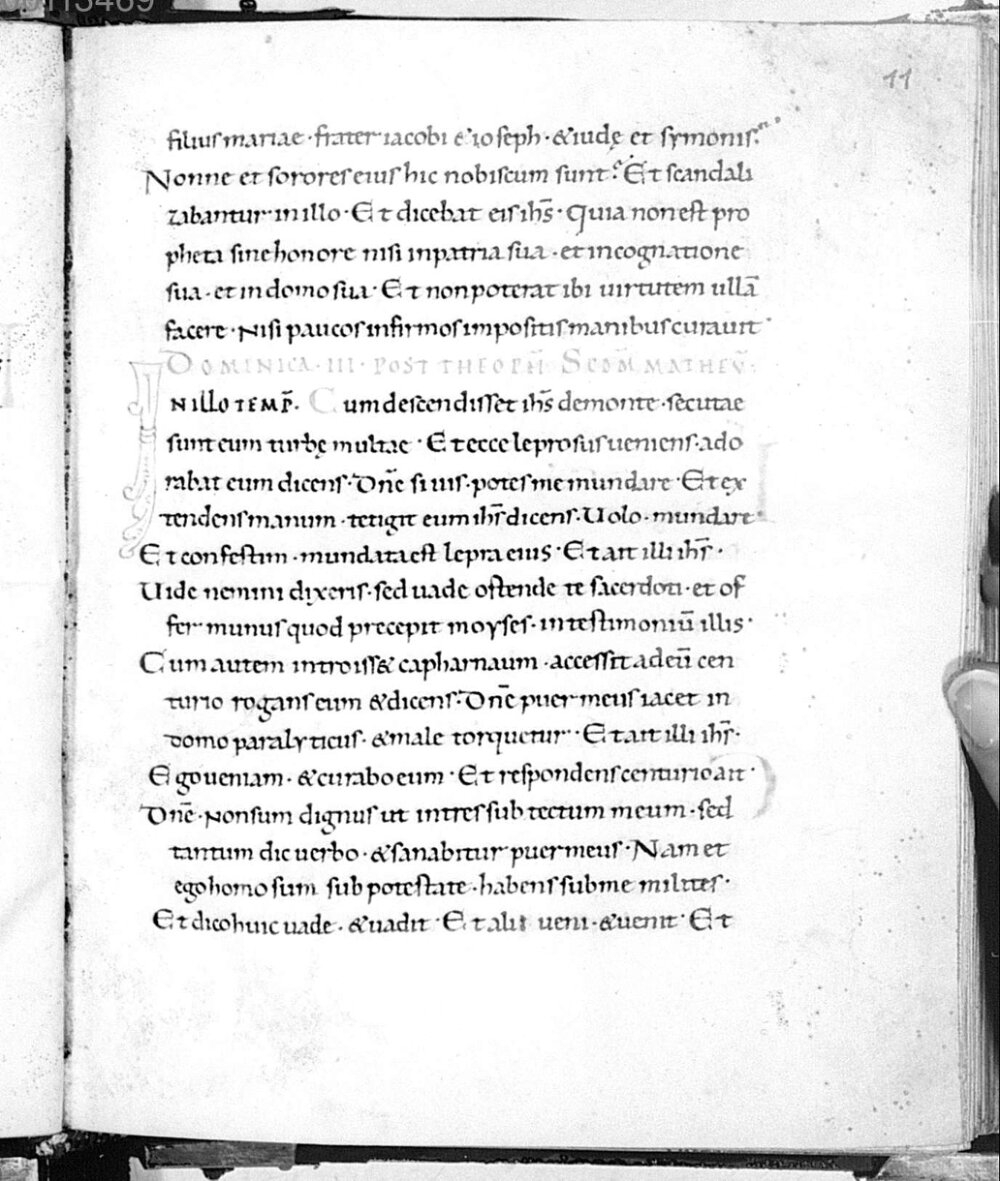 11
filius mariae · frater iacobi & ioseph · & iudę et symonis?
Nonne et sorores eius hic nobiscum sunt? Et scandali
zabantur in illo · Et dicebat eis ihs̄ · Quia non est pro
pheta sine honore nisi in patria sua · et in cognatione
sua · et in domo sua · Et non poterat ibi uirtutem ullā
facere · Nisi paucos infirmos impositis manibus curauit ·
DOMINICA · III · POST THEOPH̄ SCDM̄ MATHEV̄ ·
INILLO TEMP̄R · Cum descendisset ihs̄ de monte · secutae
sunt eum turbę multae · Et ecce leprosus ueniens · ado
rabat eum dicens · Dn̄e si uis · potes me mundare · Et ex
tendens manum · tetigit eum ihs̄ dicens · Uolo · mundare ·
Et confestim · mundata est lepra eius · Et ait illi ihs̄ ·
Uide nemini dixeris · sed uade ostende te sacerdoti · et of
fer munus quod precepit moyses · in testimoniū illis ·
Cum autem introiss& capharnaum · accessit ad eū cen
turio rogans eum & dicens · Dn̄e puer meus iacet in
domo paralyticus · & male torquetur · Et ait illi ihs̄ ·
Ego ueniam · & curabo eum · Et respondens centurio ait ·
Dn̄e · Non sum dignus ut intres sub tectum meum · sed
tantum dic uerbo · & sanabitur puer meus · Nam et
ego homo sum sub potestate · habens sub me milites ·
Et dico huic uade · & uadit · Et alii ueni · & uenit · Et